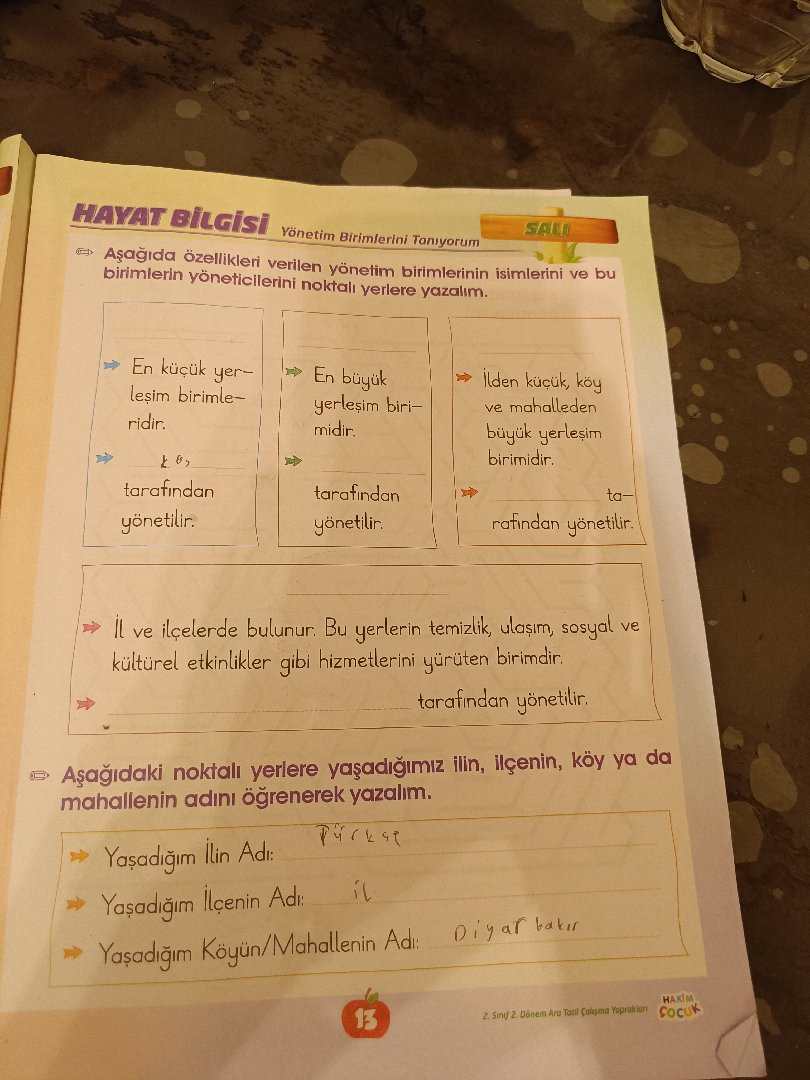 HAYAT BİLGİSİ Yönetim Birimlerini Tanıyorum SALI
Aşağıda özellikleri verilen yönetim birimlerinin isimlerini ve bu
birimlerin yöneticilerini noktalı yerlere yazalım.
En küçük yer-
leşim birimle-
ridir.
tarafından
yönetilir.
En büyük
yerleşim biri-
midir.
tarafından
yönetilir.
İlden küçük, köy
ve mahalleden
büyük yerleşim
birimidir.
ta-
rafından yönetilir.
İl ve ilçelerde bulunur. Bu yerlerin temizlik, ulaşım, sosyal ve
kültürel etkinlikler gibi hizmetlerini yürüten birimdir.
tarafından yönetilir.
Aşağıdaki noktalı yerlere yaşadığımız ilin, ilçenin, köy ya da
mahallenin adını öğrenerek yazalım.
Yaşadığım İlin Adı:
Yaşadığım İlçenin Adı: il
Yaşadığım Köyün/Mahallenin Adı: Diyarbakır
13
2. Sınıf 2. Dönem Ara Tatil Çalışma Yaprakları
HAKİM
ÇOCUK